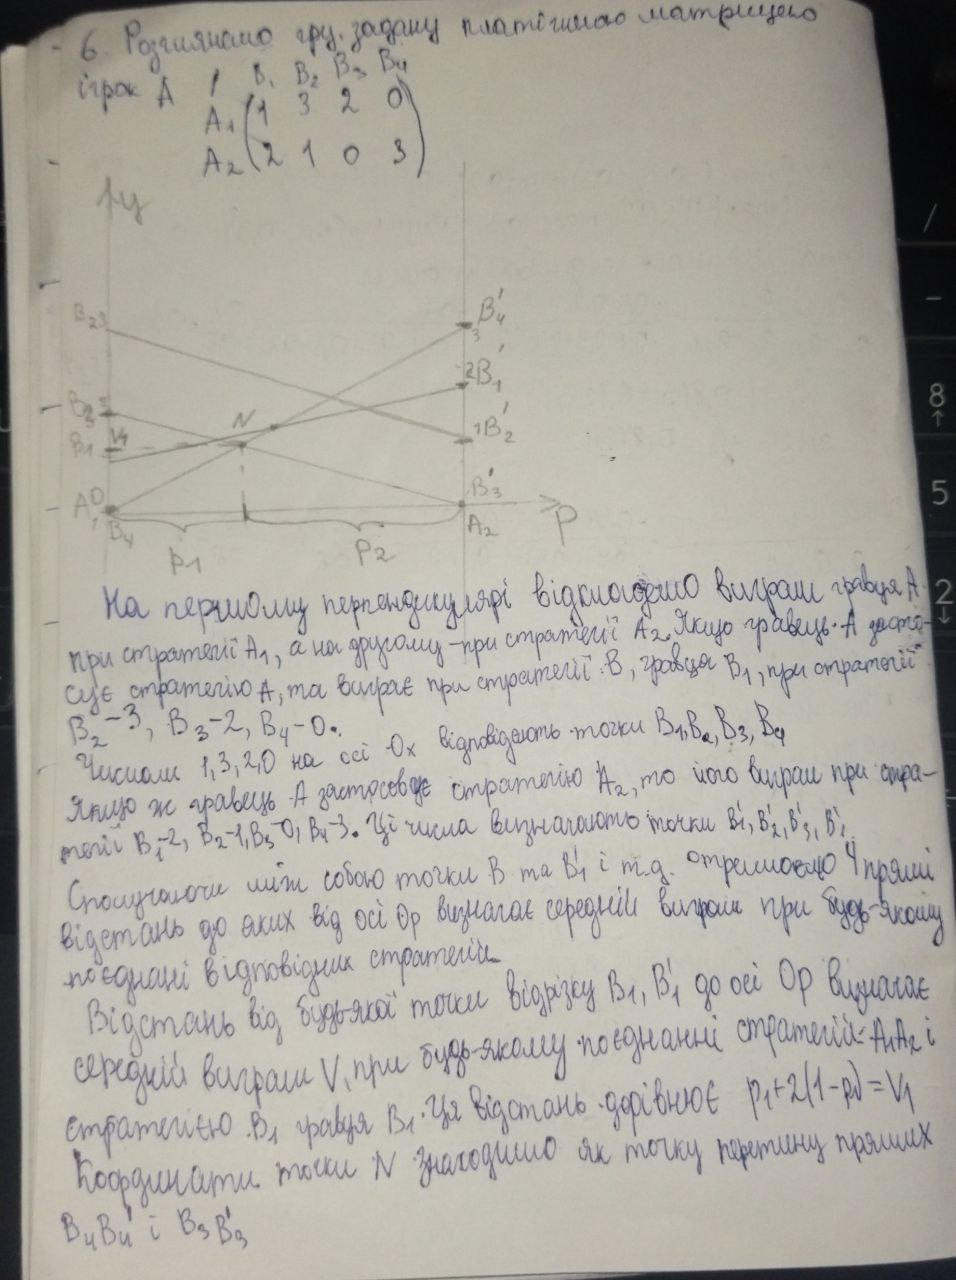 6. Розглянемо гру, задану платіжною матрицею
ігрок A / B1 B2 B3 B4
A1 1 3 2 0
A2 2 1 0 3
y
B2 3
B3
B1
N
B'4
3
2 B'1
1 B'2
B'3
A1 0
B4
A2
P
p1
p2
На першому перпендикулярі відкладемо виграш гравця A
при стратегії A1, а на другому - при стратегії A2. Якщо гравець A засто-
сує стратегію A, та виграє при стратегії B, гравця B1, при стратегії
B2 - 3, B3 - 2, B4 - 0.
Числам 1,3,2,0 на осі Ox відповідають точки B1, B2, B3, B4
Якщо ж гравець A застосовує стратегію A2, то його виграш при стра-
тегії B1-2, B2-1, B3-0, B4-3. Ці числа визначають точки B'1, B'2, B'3, B'4
Сполучаючи між собою точки B та B'1 і т.д. отримаємо 4 прямі
відстань до яких від осі Op визначає середній виграш при будь-якому
поєднані відповідних стратегій
Відстань від будь-якої точки відрізку B1, B'1 до осі Op визначає
середній виграш V, при будь-якому поєднанні стратегій A1A2 і
стратегією B1 гравця B1. Ця відстань дорівнює p1+2(1-p1)=V1
Координати точки N знаходимо як точку перетину прямих
B4B'4 і B3B'3